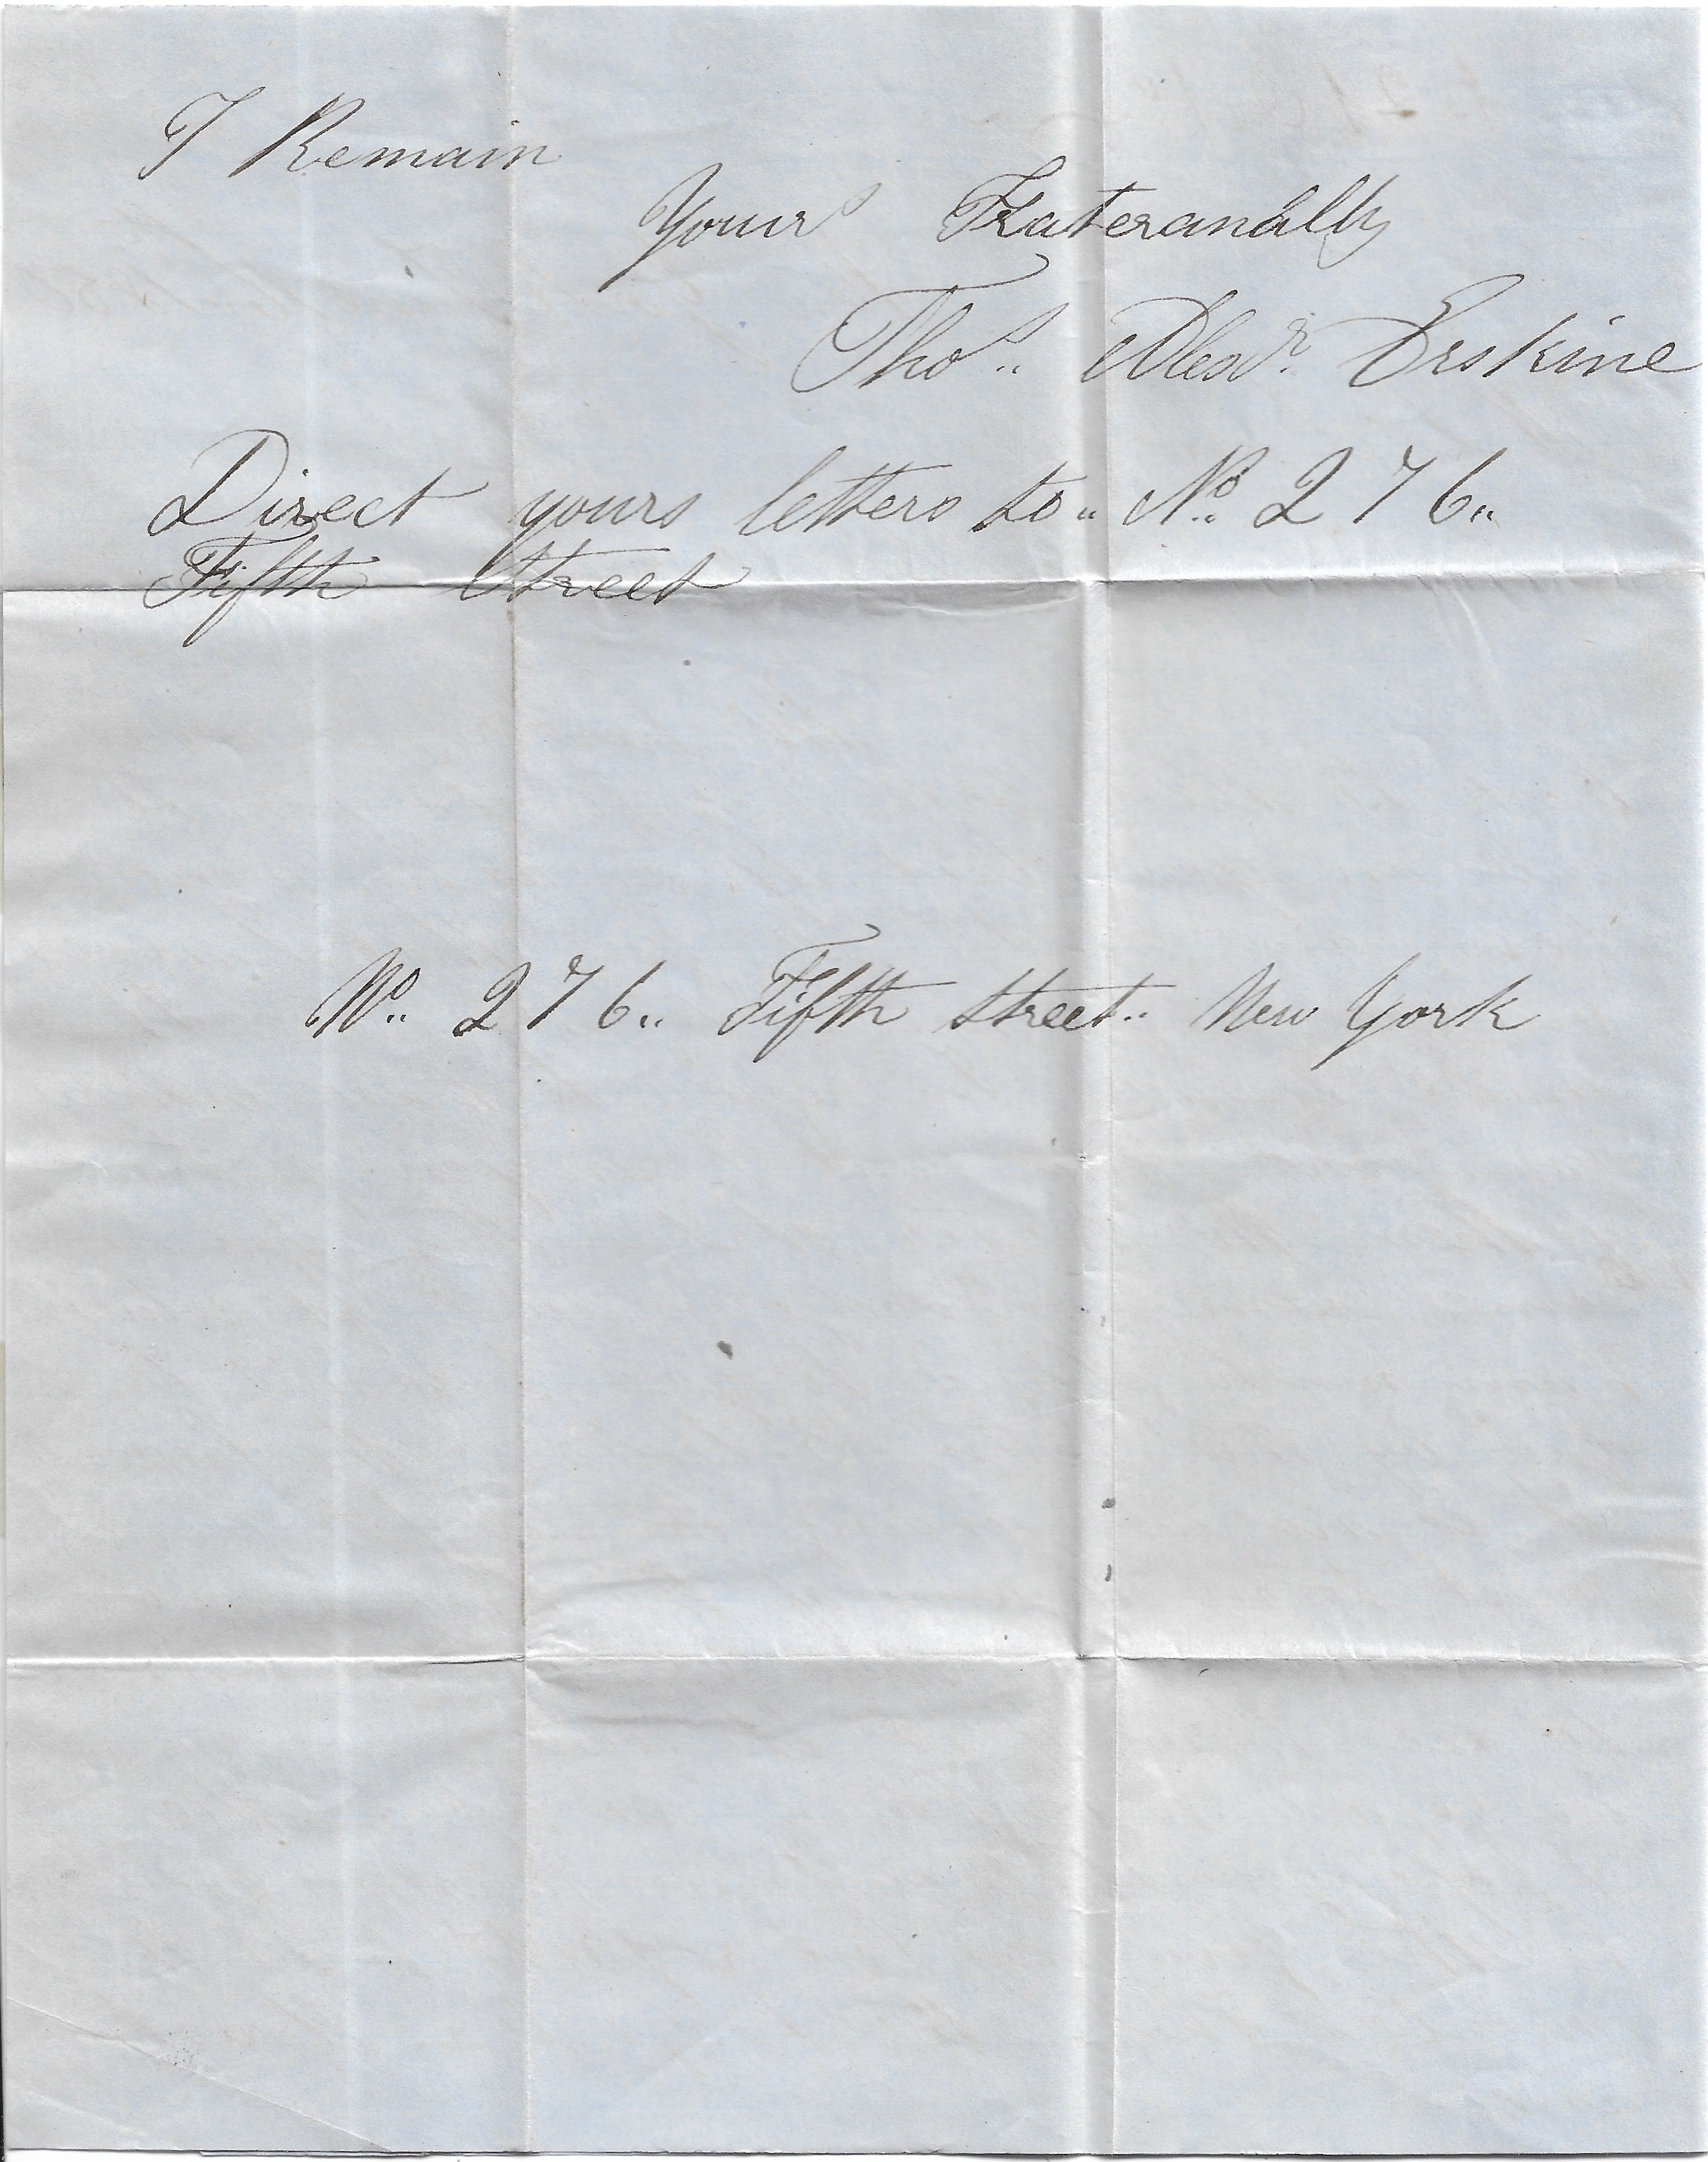 I Remain
Yours Frateranally
Thos.. Alexr. Erskine
Direct yours letters to.. No.. 276..
Fifth Street
No.. 276.. Fifth Street.. New York